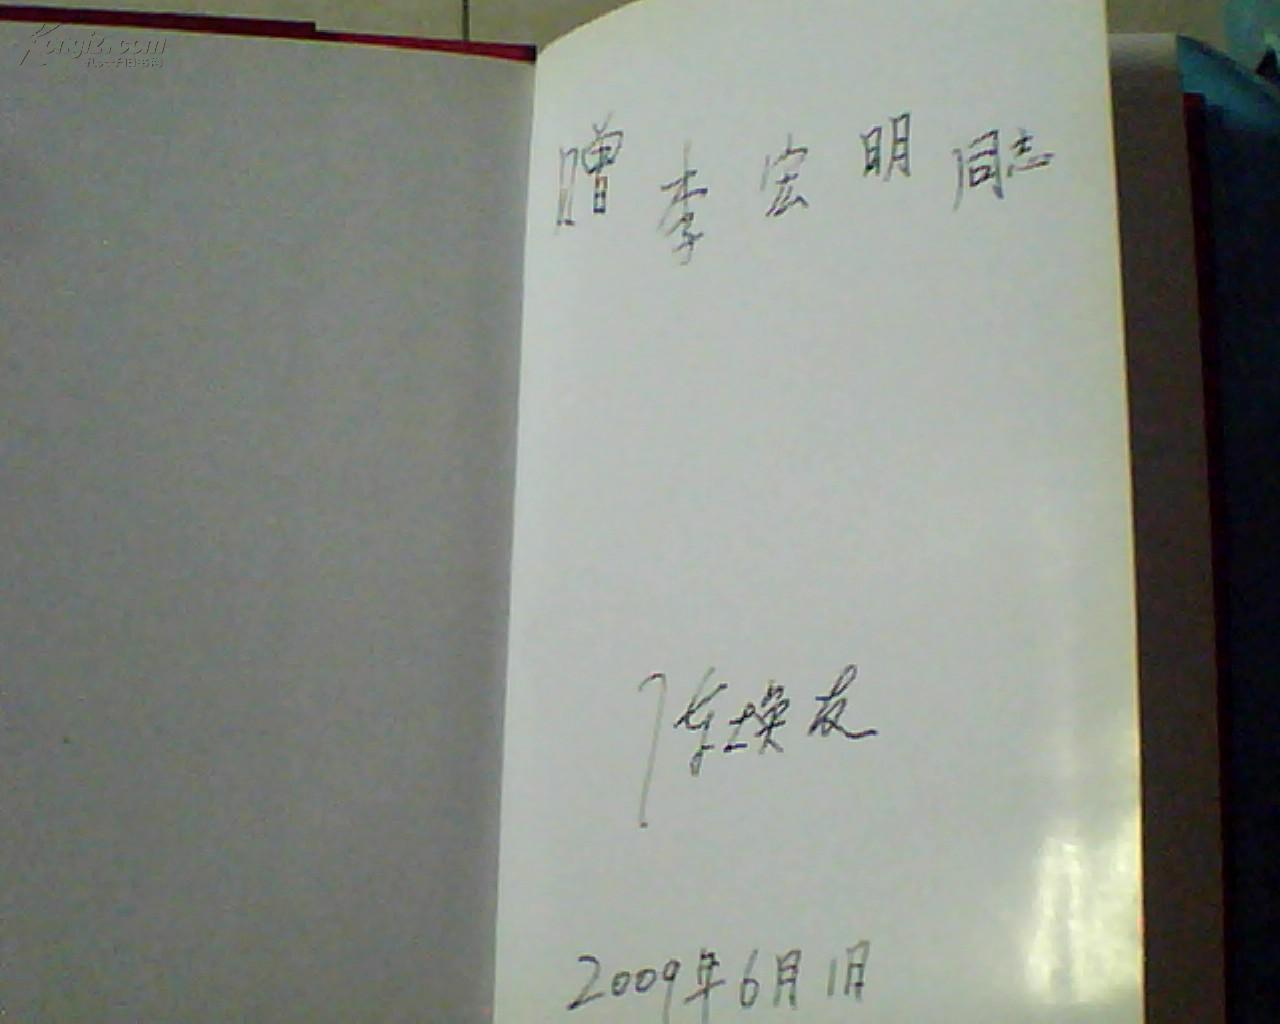 Kongfz.com
孔夫子旧书网
赠李宏明同志
陈焕友
2009年6月1日